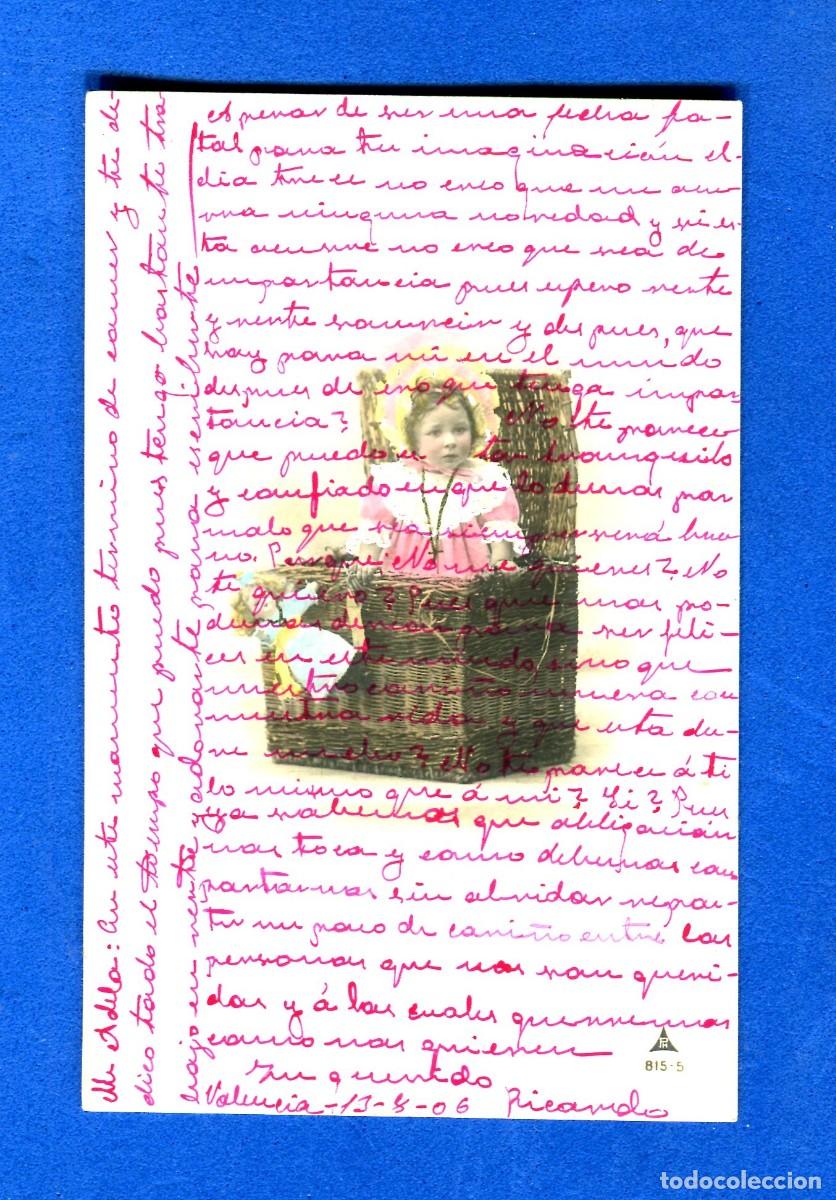 Mi Adela: En este momento termino de comer y te de-
dico todo el tiempo que puedo pues tengo bastante tra-
bajo en verte y adorarte para escribirte
A pesar de ser una fecha fa-
tal para tu imaginación el
dia trece no creo que me ocu
rra ninguna novedad y si es-
ta ocurre no creo que sea de
importancia pues espero verte
y verte sonreir y despues, que
hay para mi en el mundo
despues de eso que tenga impor
tancia? No te parece
que puedo estar tranquilo
y confiado en que lo demas por
malo que sea siempre será bue
no. Porque No me quieres? No
te quiero? Pues que mas po-
demos desear para ser feli-
ces en este mundo, sino que
nuestro cariño muera con
nuestra vida y que esta du-
re mucho? No te parece á ti
lo mismo que á mi? Si? Pues
ya sabemos que obligación
nos toca y como debemos com
portarnos sin olvidar repar-
tir un poco de cariño entre las
personas que nos son queri-
das y á las cuales queremos
como nos quieren
Tu querido
Valencia-13-8-06 Ricardo
PH
815-5
todocoleccion